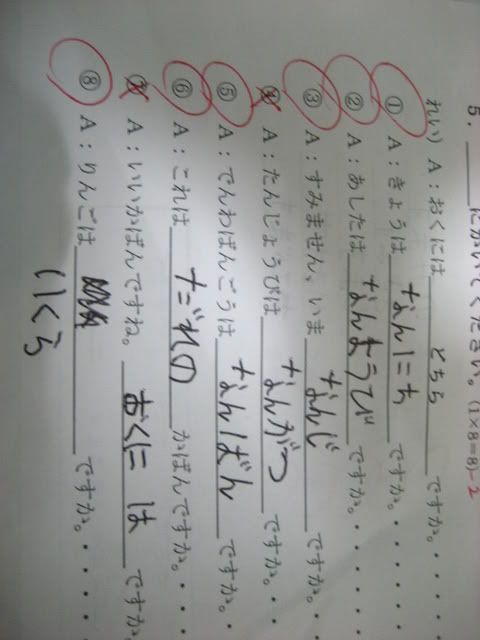 5．＿＿にかいてください。(1×8＝8) -2
れい) A：おくには どちら ですか。・・・・
① A：きょうは なんにち ですか。・・・・・
② A：あしたは なんようび ですか。・・・・
③ A：すみません、いま なんじ ですか。・・・
④ A：たんじょうびは なんがつ ですか。・・
⑤ A：でんわばんごうは なんばん ですか。・
⑥ A：これは だれの かばんですか。・・・
⑦ A：いいかばんですね。おくに は ですか。
⑧ A：りんごは いくら ですか。・・・・